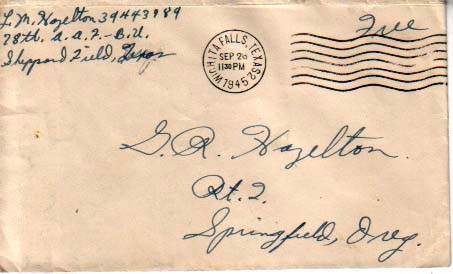 L. M. Hazelton 39443989
78th. A.A.F.-B.U.
Sheppard Field, Texas
Free
WICHITA FALLS, TEXAS
SEP 20
1130 PM
1945
G. R. Hazelton.
Rt. 2.
Springfield, Oreg.